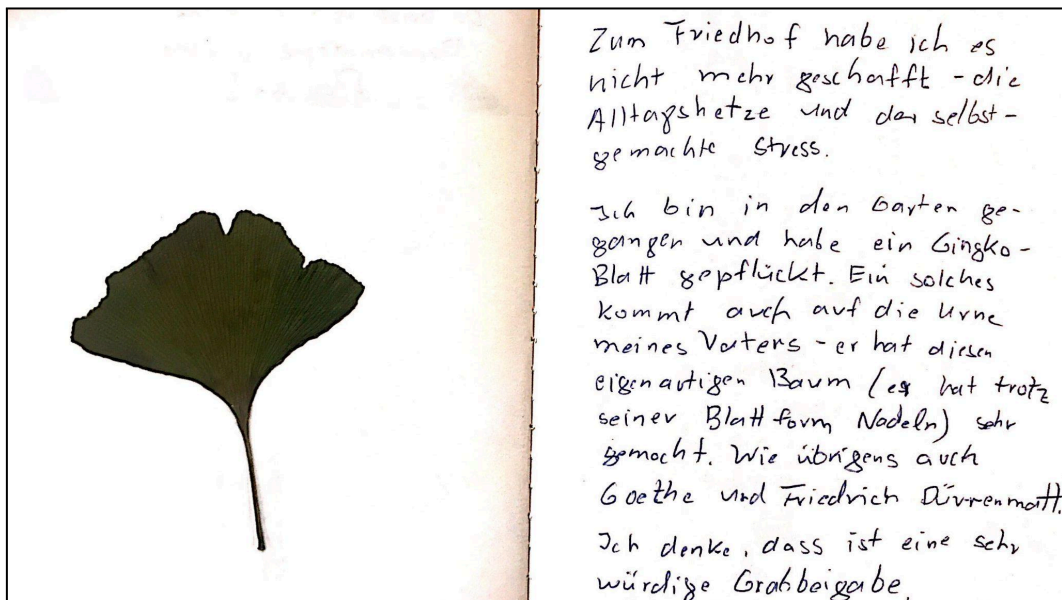 Zum Friedhof habe ich es
nicht mehr geschafft - die
Alltagshetze und der selbst-
gemachte Stress.
Ich bin in den Garten ge-
gangen und habe ein Gingko-
Blatt gepflückt. Ein solches
kommt auch auf die Urne
meines Vaters - er hat diesen
eigenartigen Baum (er hat trotz
seiner Blattform Nadeln) sehr
gemocht. Wie übrigens auch
Goethe und Friedrich Dürrenmatt.
Ich denke, dass ist eine sehr
würdige Grabbeigabe.